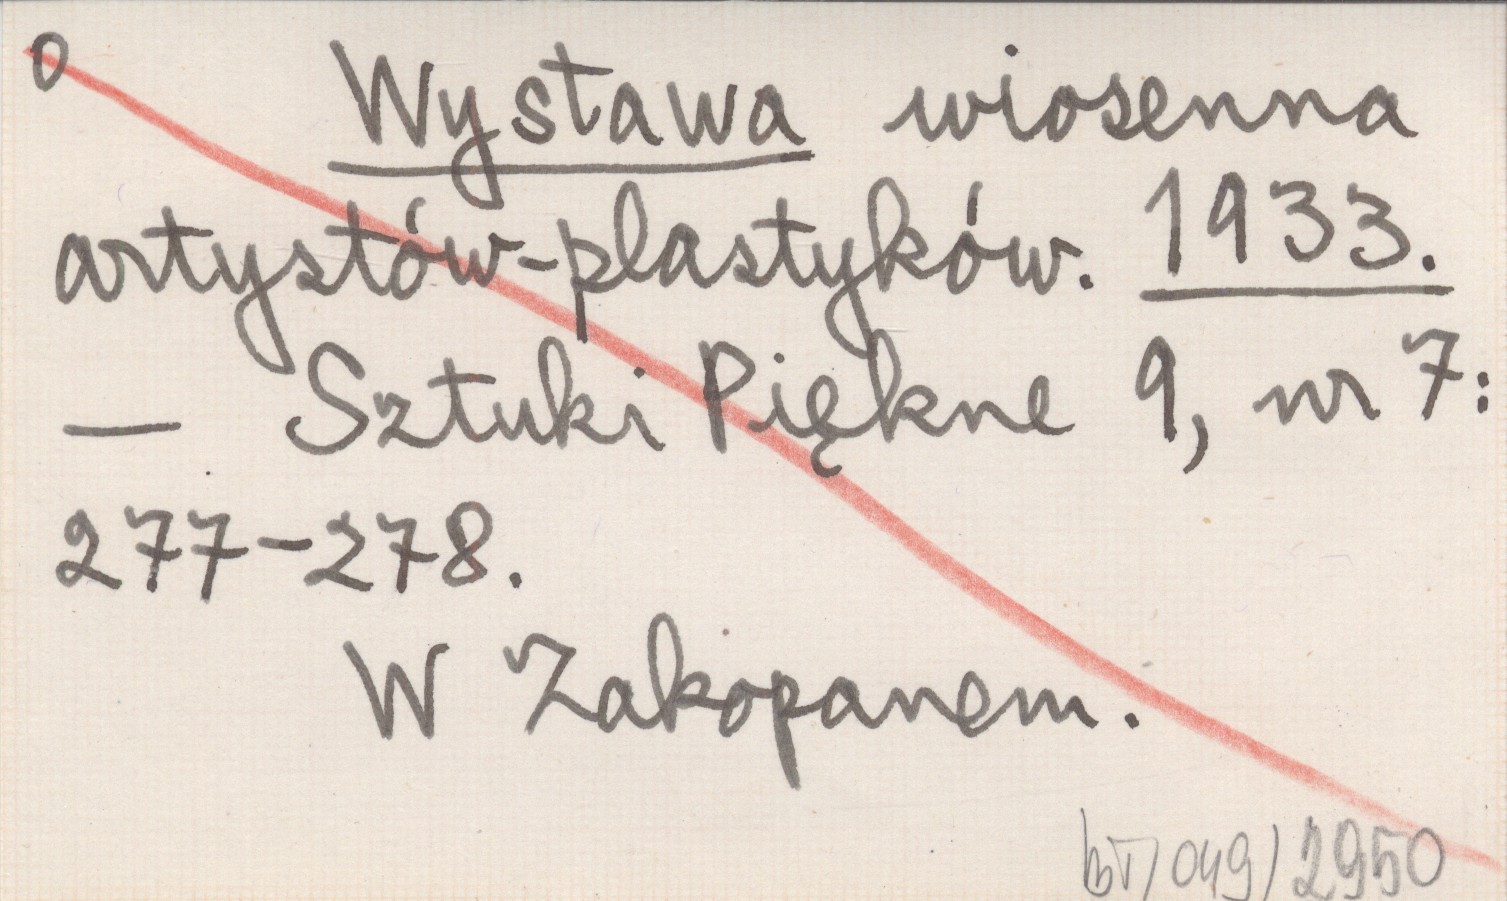 0 Wystawa wiosenna
artystów-plastyków. 1933.
— Sztuki Piękne 9, nr 7:
277-278.
W Zakopanem.
bT/049/2950